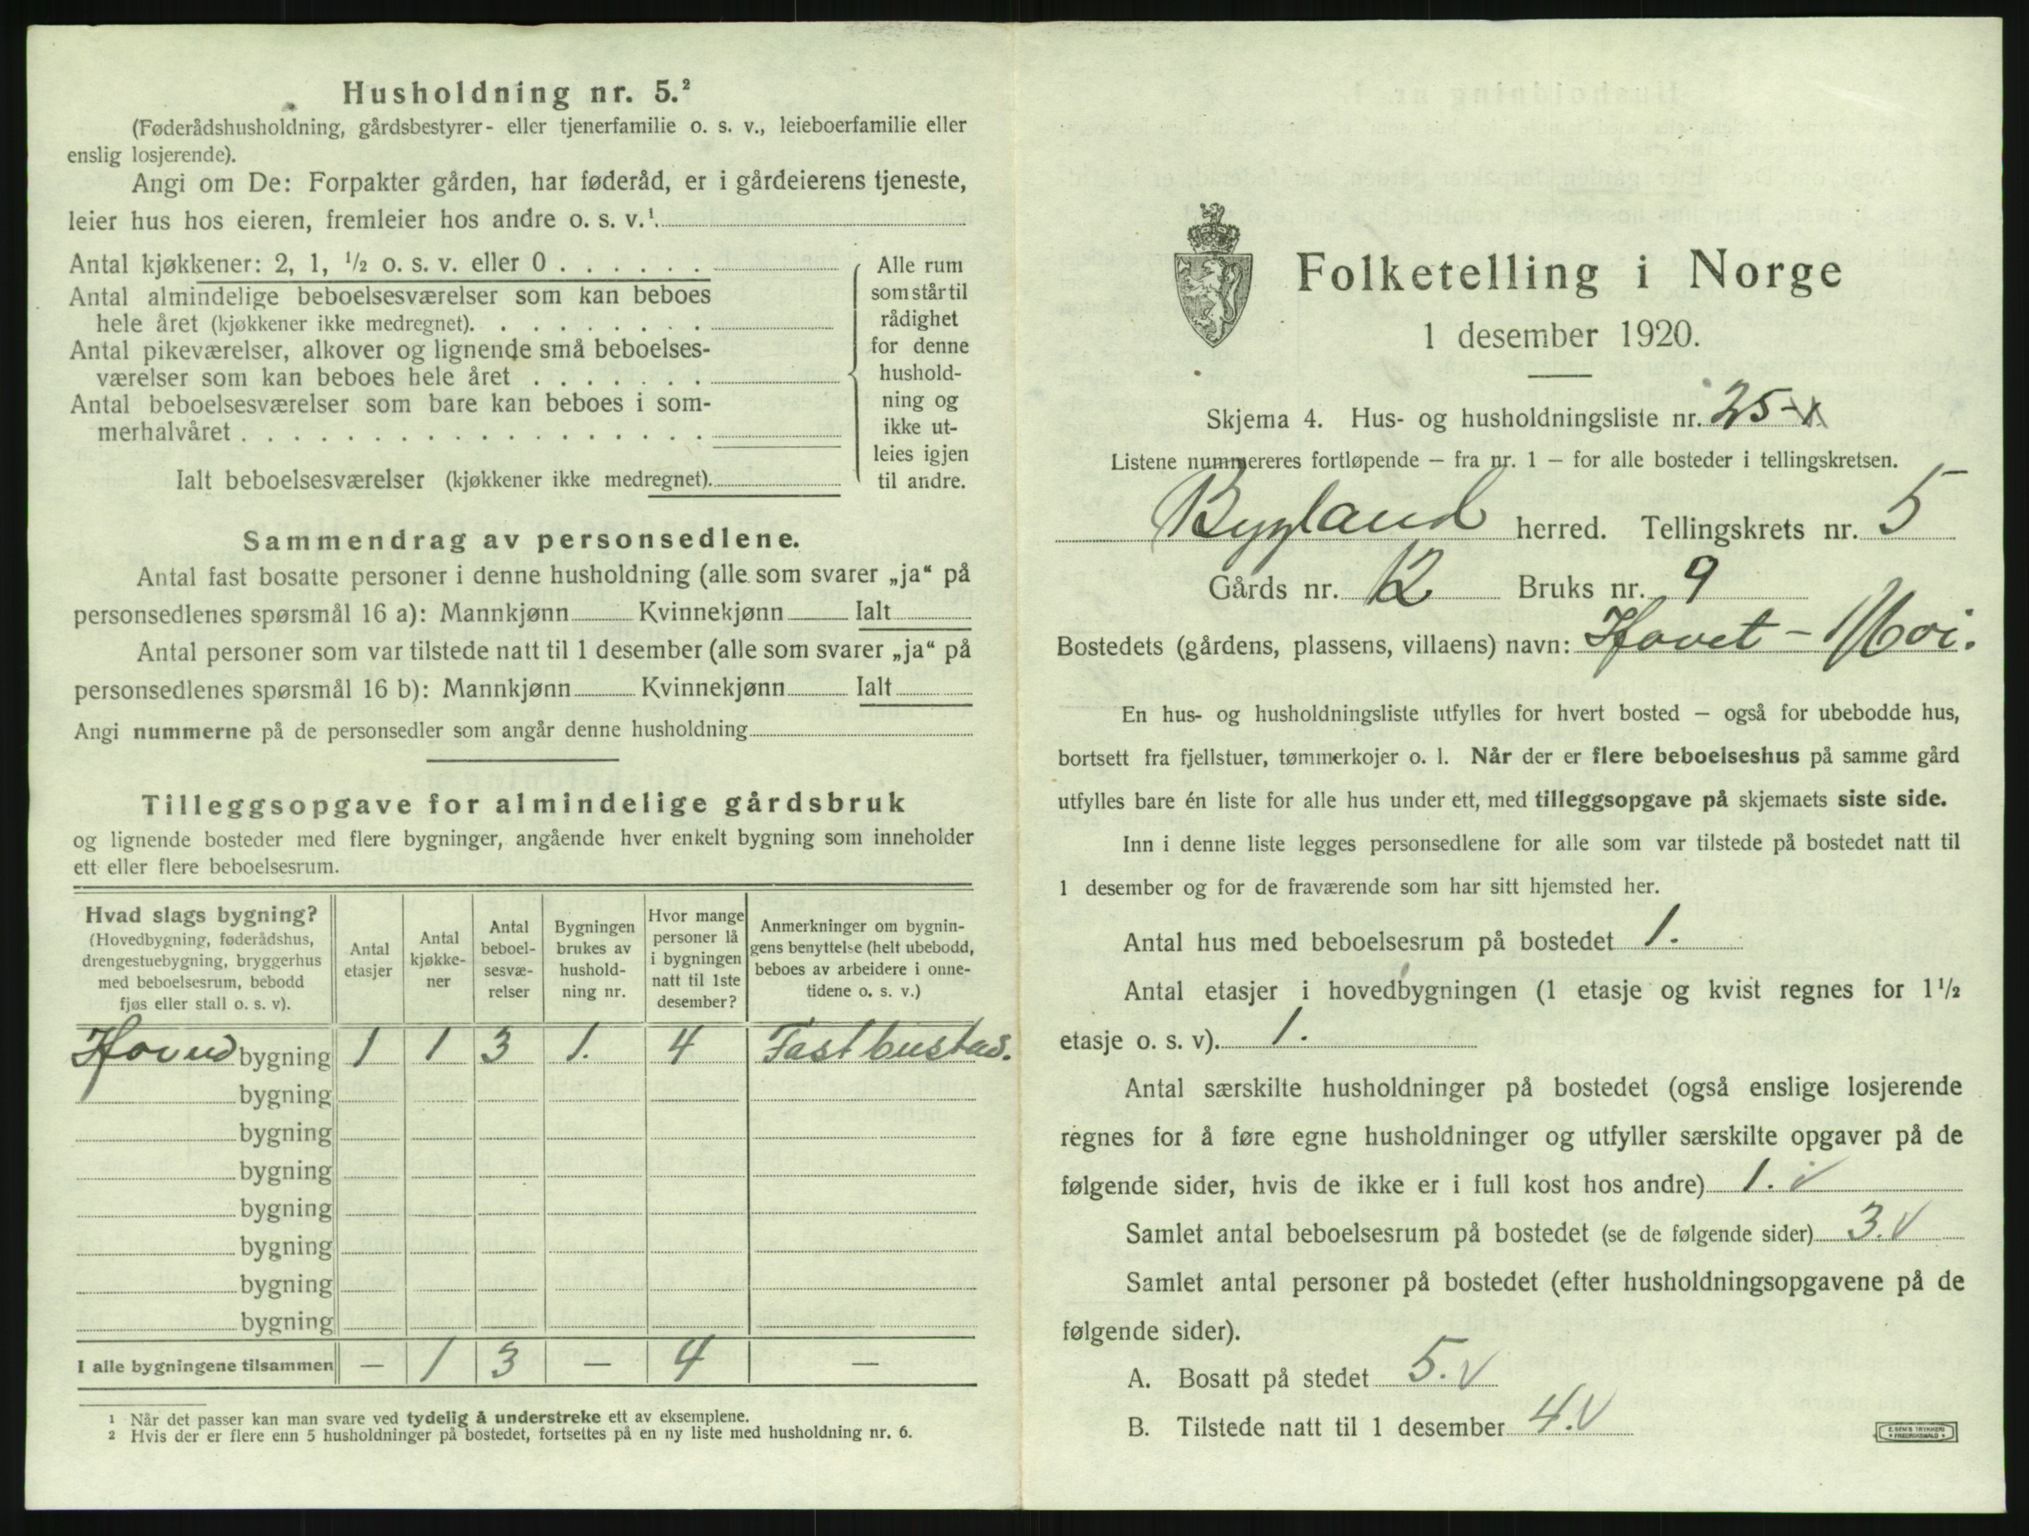 Husholdning nr. 5.²
(Føderådshusholdning, gårdsbestyrer- eller tjenerfamilie o. s. v., leieboerfamilie eller
enslig losjerende).
Angi om De: Forpakter gården, har føderåd, er i gårdeierens tjeneste,
leier hus hos eieren, fremleier hos andre o. s. v.¹
Antal kjøkkener: 2, 1, ½ o. s. v. eller 0 . . . . . .
Antal almindelige beboelsesværelser som kan beboes
hele året (kjøkkener ikke medregnet). . . . . . . . .
Antal pikeværelser, alkover og lignende små beboelses-
værelser som kan beboes hele året . . . . . . .
Antal beboelsesværelser som bare kan beboes i som-
merhalvåret . . . . . . . . . . . . . . . . . .
Ialt beboelsesværelser (kjøkkener ikke medregnet).
Alle rum
som står til
rådighet
for denne
hushold-
ning og
ikke ut-
leies igjen
til andre.
Sammendrag av personsedlene.
Antal fast bosatte personer i denne husholdning (alle som svarer „ja“ på
personsedlenes spørsmål 16 a): Mannkjønn Kvinnekjønn Ialt
Antal personer som var tilstede natt til 1 desember (alle som svarer „ja“ på
personsedlenes spørsmål 16 b): Mannkjønn Kvinnekjønn Ialt
Angi nummerne på de personsedler som angår denne husholdning
Tilleggsopgave for almindelige gårdsbruk
og lignende bosteder med flere bygninger, angående hver enkelt bygning som inneholder
ett eller flere beboelsesrum.
Hvad slags bygning?
(Hovedbygning, føderådshus,
drengestuebygning, bryggerhus
med beboelsesrum, bebodd
fjøs eller stall o. s. v).
Antal
etasjer
Antal
kjøkke-
ner
Antal
beboel-
sesvæ-
relser
Bygningen
brukes av
hushold-
ning nr.
Hvor mange
personer lå
i bygningen
natt til 1ste
desember?
Anmerkninger om bygnin-
gens benyttelse (helt ubebodd,
beboes av arbeidere i onne-
tidene o. s. v.)
Hovud bygning 1 1 3 1. 4 Fast bustad.
bygning
bygning
bygning
bygning
bygning
bygning
bygning
I alle bygningene tilsammen — 1 3 — 4 —
1 Når det passer kan man svare ved tydelig å understreke ett av eksemplene.
2 Hvis der er flere enn 5 husholdninger på bostedet, fortsettes på en ny liste med husholdning nr. 6.
Folketelling i Norge
1 desember 1920.
Skjema 4. Hus- og husholdningsliste nr. 25
Listene nummereres fortløpende — fra nr. 1 — for alle bosteder i tellingskretsen.
Bygland herred. Tellingskrets nr. 5
Gårds nr. 12 Bruks nr. 9
Bostedets (gårdens, plassens, villaens) navn: Hovet - Moi.
En hus- og husholdningsliste utfylles for hvert bosted — også for ubebodde hus,
bortsett fra fjellstuer, tømmerkojer o. l. Når der er flere beboelseshus på samme gård
utfylles bare én liste for alle hus under ett, med tilleggsopgave på skjemaets siste side.
Inn i denne liste legges personsedlene for alle som var tilstede på bostedet natt til
1 desember og for de fraværende som har sitt hjemsted her.
Antal hus med beboelsesrum på bostedet 1.
Antal etasjer i hovedbygningen (1 etasje og kvist regnes for 1½
etasje o. s. v). 1.
Antal særskilte husholdninger på bostedet (også enslige losjerende
regnes for å føre egne husholdninger og utfyller særskilte opgaver på de
følgende sider, hvis de ikke er i full kost hos andre) 1. ✓
Samlet antal beboelsesrum på bostedet (se de følgende sider) 3. ✓
Samlet antal personer på bostedet (efter husholdningsopgavene på de
følgende sider).
A. Bosatt på stedet 5. ✓
B. Tilstede natt til 1 desember 4. ✓